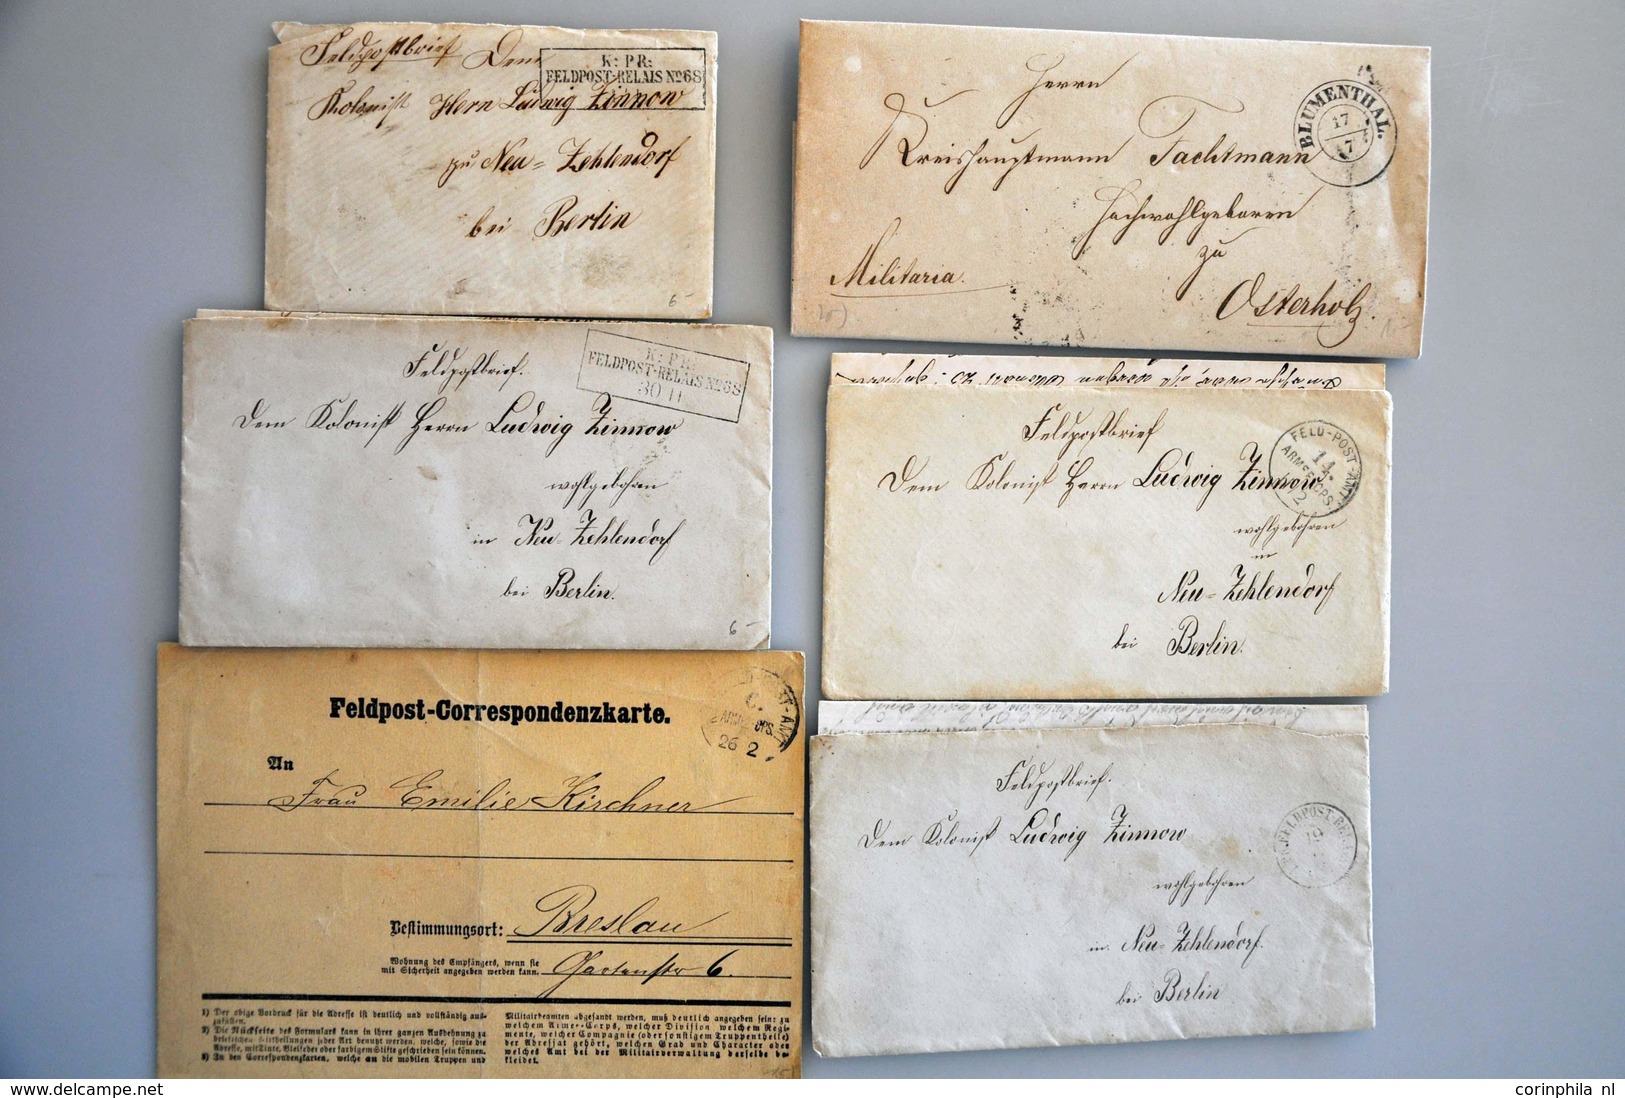 Feldpostbrief
Dem
K: PR:
FELDPOST-RELAIS No 68
Kolonist Herrn Ludwig Zinnow
zu Neu=Zehlendorf
bei Berlin
6-
Herrn
Kreishauptmann Tachtmann
Hochwohlgeboren
zu
Militaria.
Osterholz.
BLUMENTHAL.
17
7
Feldpostbrief.
K: PR:
FELDPOST-RELAIS No 68
30 11
Dem Kolonist Herrn Ludwig Zinnow
wohlgebohren
in Neu=Zehlendorf
bei Berlin.
6-
Feldpostbrief
FELD-POST-AMT
14.
ARMEE-CORPS
Dem Kolonist Herrn Ludwig Zinnow
wohlgebohren
in
Neu=Zehlendorf
bei Berlin.
Feldpost-Correspondenzkarte.
26 2
An
Frau Emilie Kirchner
Bestimmungsort: Breslau
Wohnung des Empfängers, wenn sie
mit Sicherheit angegeben werden kann.
Gartenstr 6.
1) Der obige Vordruck für die Adresse ist deutlich und vollständig aus-
zufüllen.
2) Die Rückseite des Formulars kann in ihrer ganzen Ausdehnung zu
brieflichen Mittheilungen jeder Art benutzt werden, welche, sowie die
Adresse, mit Tinte, Bleifeder oder farbigem Stifte geschrieben sein können.
3) In den Correspondenzkarten, welche an die mobilen Truppen und
Militairbeamten abgesandt werden, muß deutlich angegeben sein: zu
welchem Armee-Corps, welcher Division, welchem Regi-
mente, welcher Compagnie (oder sonstigem Truppentheile)
der Adressat gehört, welchen Grad und Character oder
welches Amt bei der Militairverwaltung derselbe be-
kleidet.
Feldpostbrief.
FELDPOST-RELAIS
19
Dem Kolonist Ludwig Zinnow
wohlgebohren
in Neu=Zehlendorf.
bei Berlin
corinphila nl